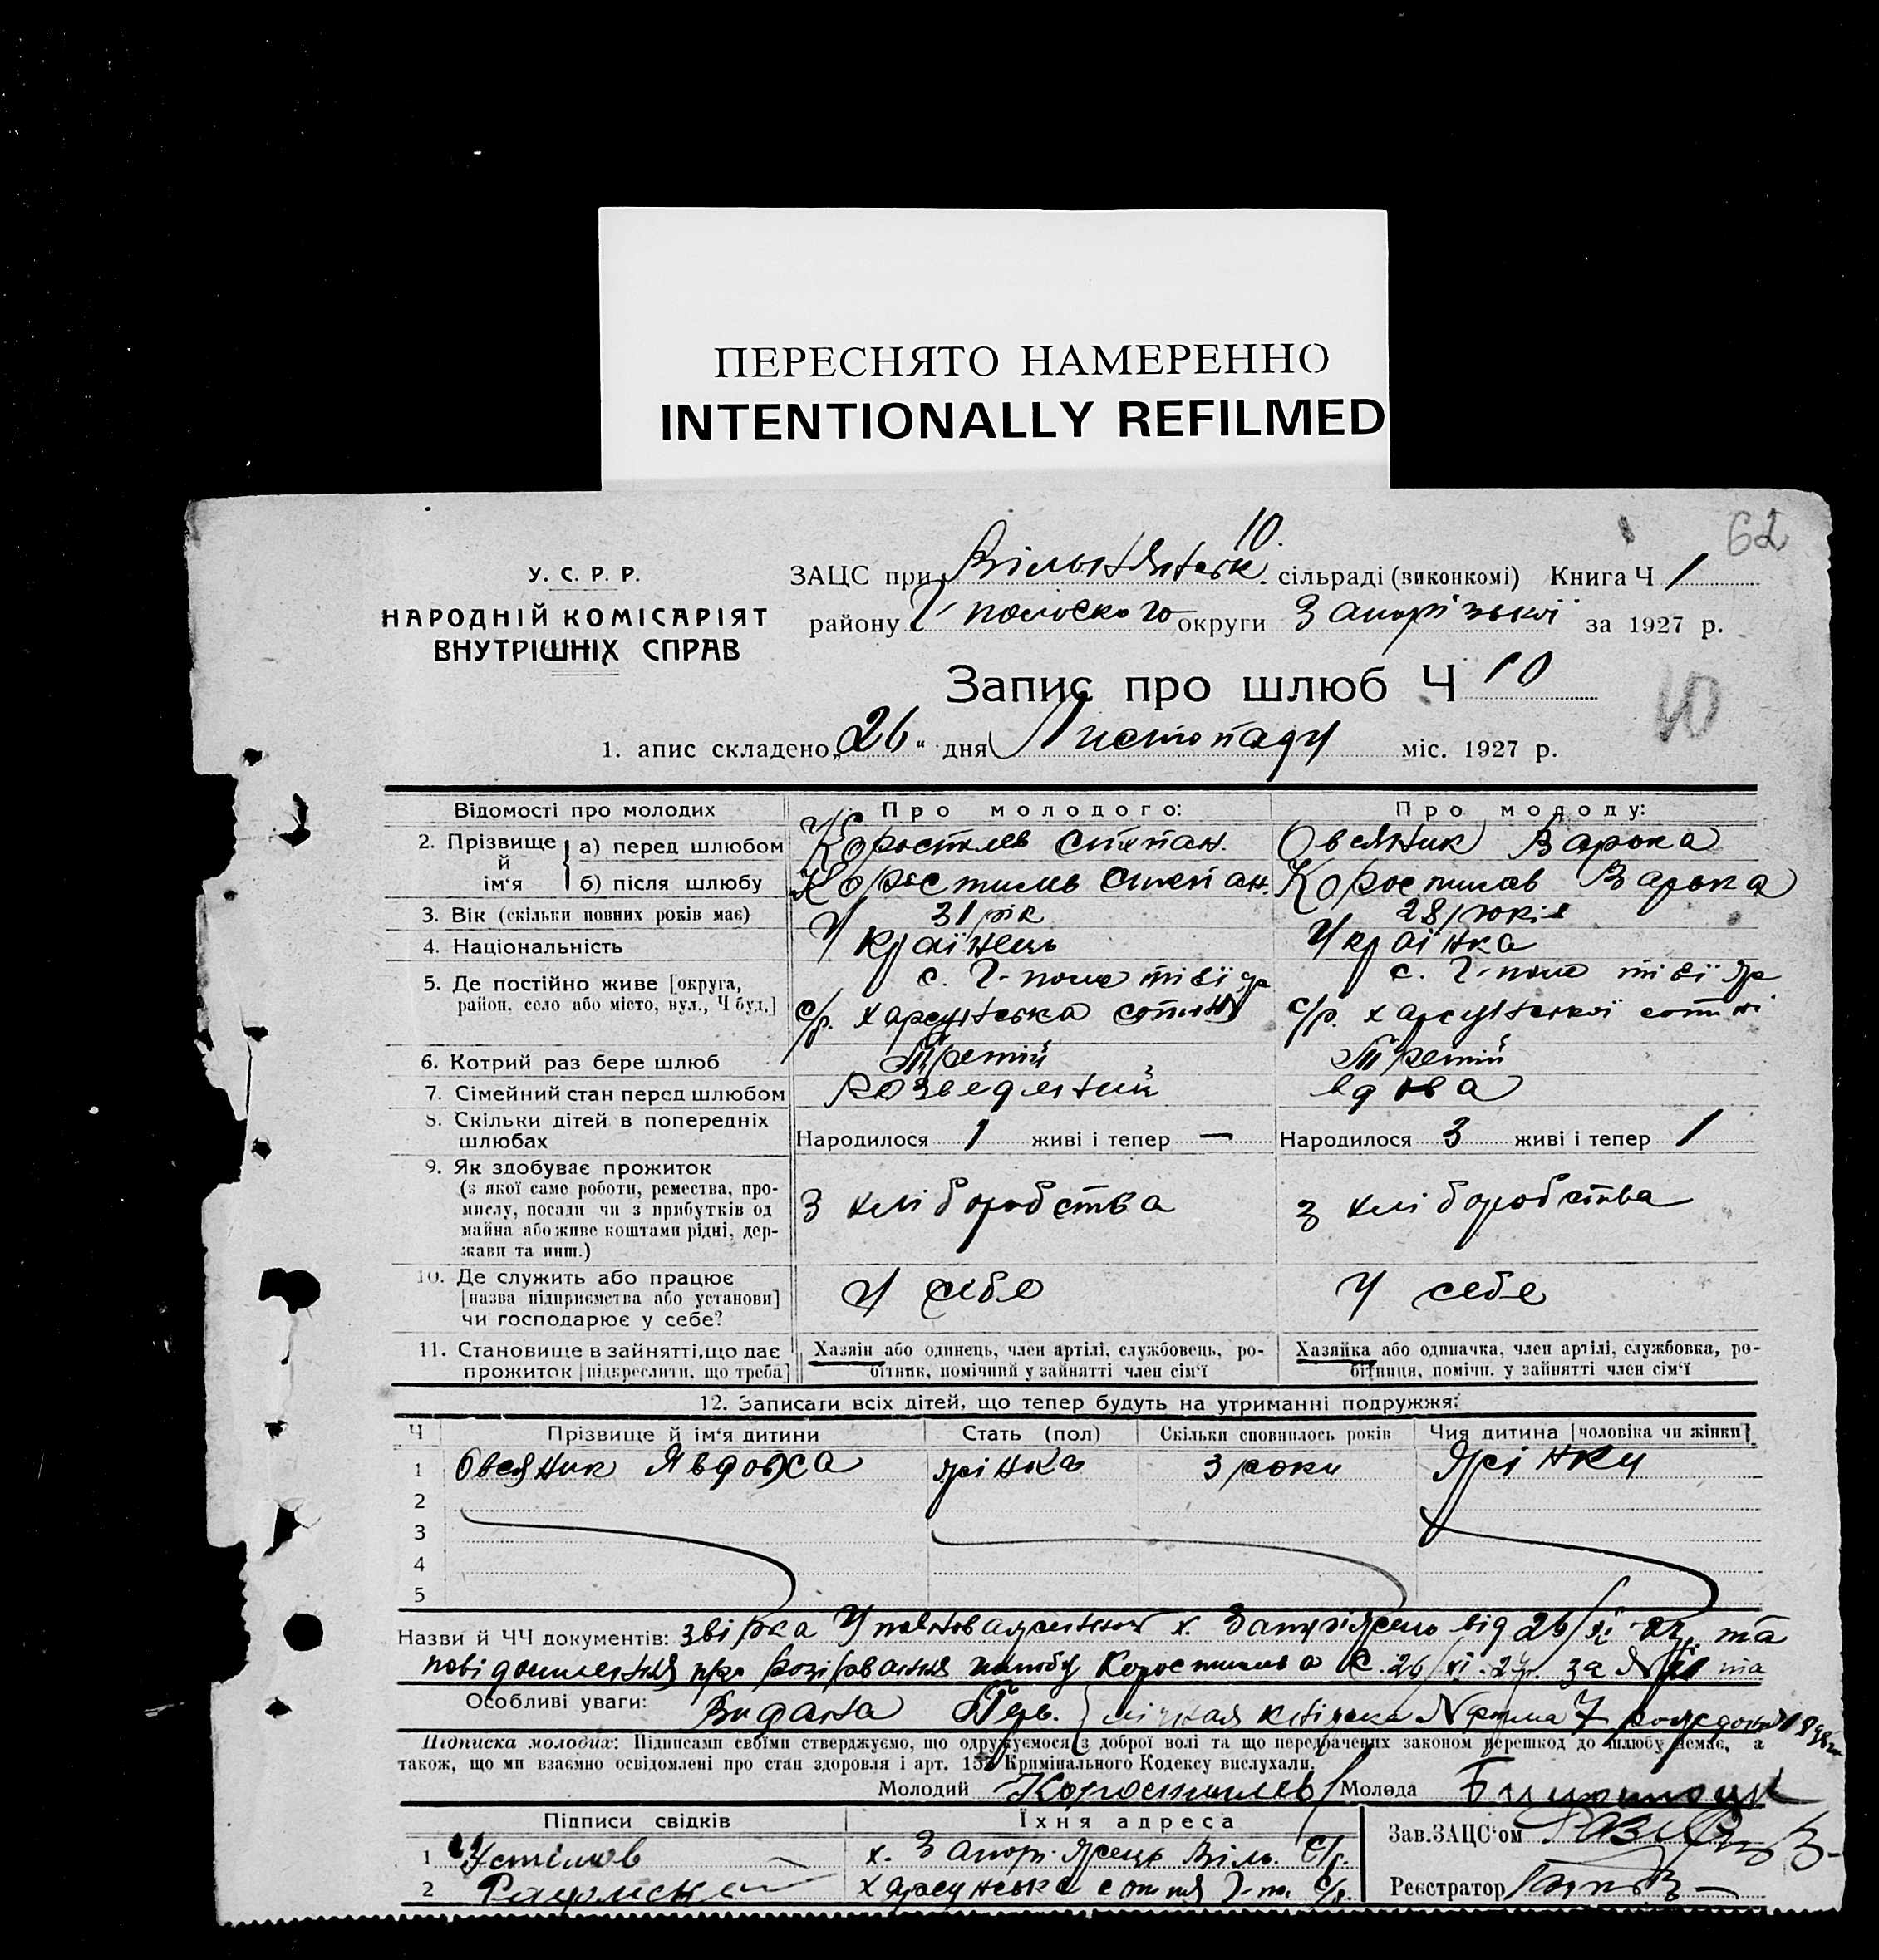 ПЕРЕСНЯТО НАМЕРЕННО
INTENTIONALLY REFILMED
62
10.
У. С. Р. Р.
НАРОДНІЙ КОМІСАРІЯТ
ВНУТРІШНІХ СПРАВ
ЗАЦС при сільраді (виконкомі) Книга Ч 1
району Г-польского округи Запорізької за 1927 р.
Запис про шлюб Ч 10
10
1. апис складено „26“ дня Листопаду міс. 1927 р.
Відомості про молодих Про молодого: Про молоду:
2. Прізвище й ім‘я а) перед шлюбом Коростилев Степан. Овсяник Варька
б) після шлюбу Коростилев Степан. Коростилев Варька
3. Вік (скільки повних років має) 31 рік 28 років
4. Національність Українець Українка
5. Де постійно живе [округа, с. Г-поле тієї ж с. Г-поле тієї ж
район, село або місто, вул., Ч буд.] с/р. сотня с/р. сотні
6. Котрий раз бере шлюб Третій Третій
7. Сімейний стан перед шлюбом Розведений вдова
8. Скільки дітей в попередніх
шлюбах Народилося 1 живі і тепер — Народилося 3 живі і тепер 1
9. Як здобуває прожиток
(з якої саме роботи, ремества, про-
мислу, посади чи з прибутків од З хліборобства з хліборобства
майна або живе коштами рідні, дер-
жави та инш.)
10. Де служить або працює
[назва підприємства або установи] У себе У себе
чи господарює у себе?
11. Становище в зайнятті, що дає Хазяїн або одинець, член артілі, службовець, ро- Хазяйка або одиначка, член артілі, службовка, ро-
прожиток [підкреслити, що треба] бітник, помічний у зайнятті член сім‘ї бітниця, помічн. у зайнятті член сім‘ї
12. Записати всіх дітей, що тепер будуть на утриманні подружжя:
Ч Прізвище й ім‘я дитини Стать (пол) Скільки сповнилось років Чия дитина [чоловіка чи жінки]
1 Овсяник Явдоха жінка 3 роки Жінки
2
3
4
5
Назви й ЧЧ документів: х. від 26/XI та
повідомлення про розірвання шлюбу Коростильова С. 26/XI-27р. за N та
Особливі уваги: Видана форма 7
Підписка молодих: Підписами своїми стверджуємо, що одружуємося з доброї волі та що передбачених законом перешкод до шлюбу немає, а
також, що ми взаємно освідомлені про стан здоровля і арт. 15 Кримінального Кодексу вислухали.
Молодий Коростилев Молода
Підписи свідків Їхня адреса Зав.ЗАЦС‘ом
1 х. с/р.
2 сотня Г-п. с/р. Реєстратор